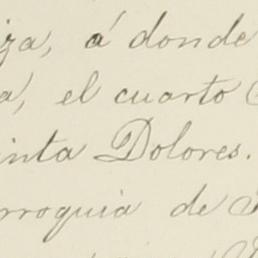 za, á donde
a, el cuarto
inta Dolores.
rroquia de